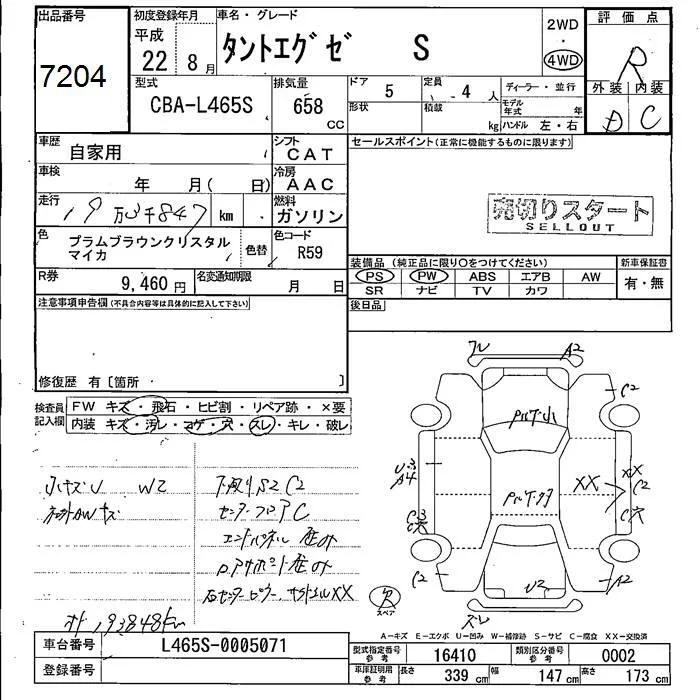 出品番号
7204
初度登録年月
平成
22年 8月
車名・グレード
タントエグゼ S
2WD
・
4WD
評価点
R
外装 内装
D C
型式
CBA-L465S
排気量
658 CC
ドア
5
形状
定員
4人
積載
kg
ディーラー・並行
モデル年式 年
ハンドル 左・右
車歴
自家用
シフト
CAT
車検
年 月( 日)
冷房
AAC
走行
19万3千847 km
燃料
ガソリン
色
プラムブラウンクリスタル
マイカ
色替
色コード
R59
R券
9,460円
名変通知期限
月 日
セールスポイント(正常に機能するものに限ります)
売切りスタート
SELLOUT
装備品(純正品に限り○をつけてください)
PS PW ABS エアB AW
SR ナビ TV カワ
新車保証書
有・無
後日品
注意事項申告欄(不具合内容等は具体的に記入して下さい)
修復歴 有〔箇所 〕
検査員記入欄
FW キズ・飛石・ヒビ割・リペア跡・×要
内装 キズ・汚レ・コゲ・穴・スレ・キレ・破レ
小キズU W2
下廻りS2 C2
センターフロアC
エンドパネル歪み
193848km
ズレ
A2
C2
パルプ小
U3
A4
XX
XX
C2
C穴
C3
C穴
C2
U2
A2
スペア
ズレ
A-キズ E-エクボ U-凹み W-補修跡 S-サビ C-腐食 XX-交換済
車台番号
L465S-0005071
登録番号
型式指定番号
参考
16410
類別区分番号
参考
0002
車庫証明用
参考
長さ
339 cm
幅
147 cm
高さ
173 cm